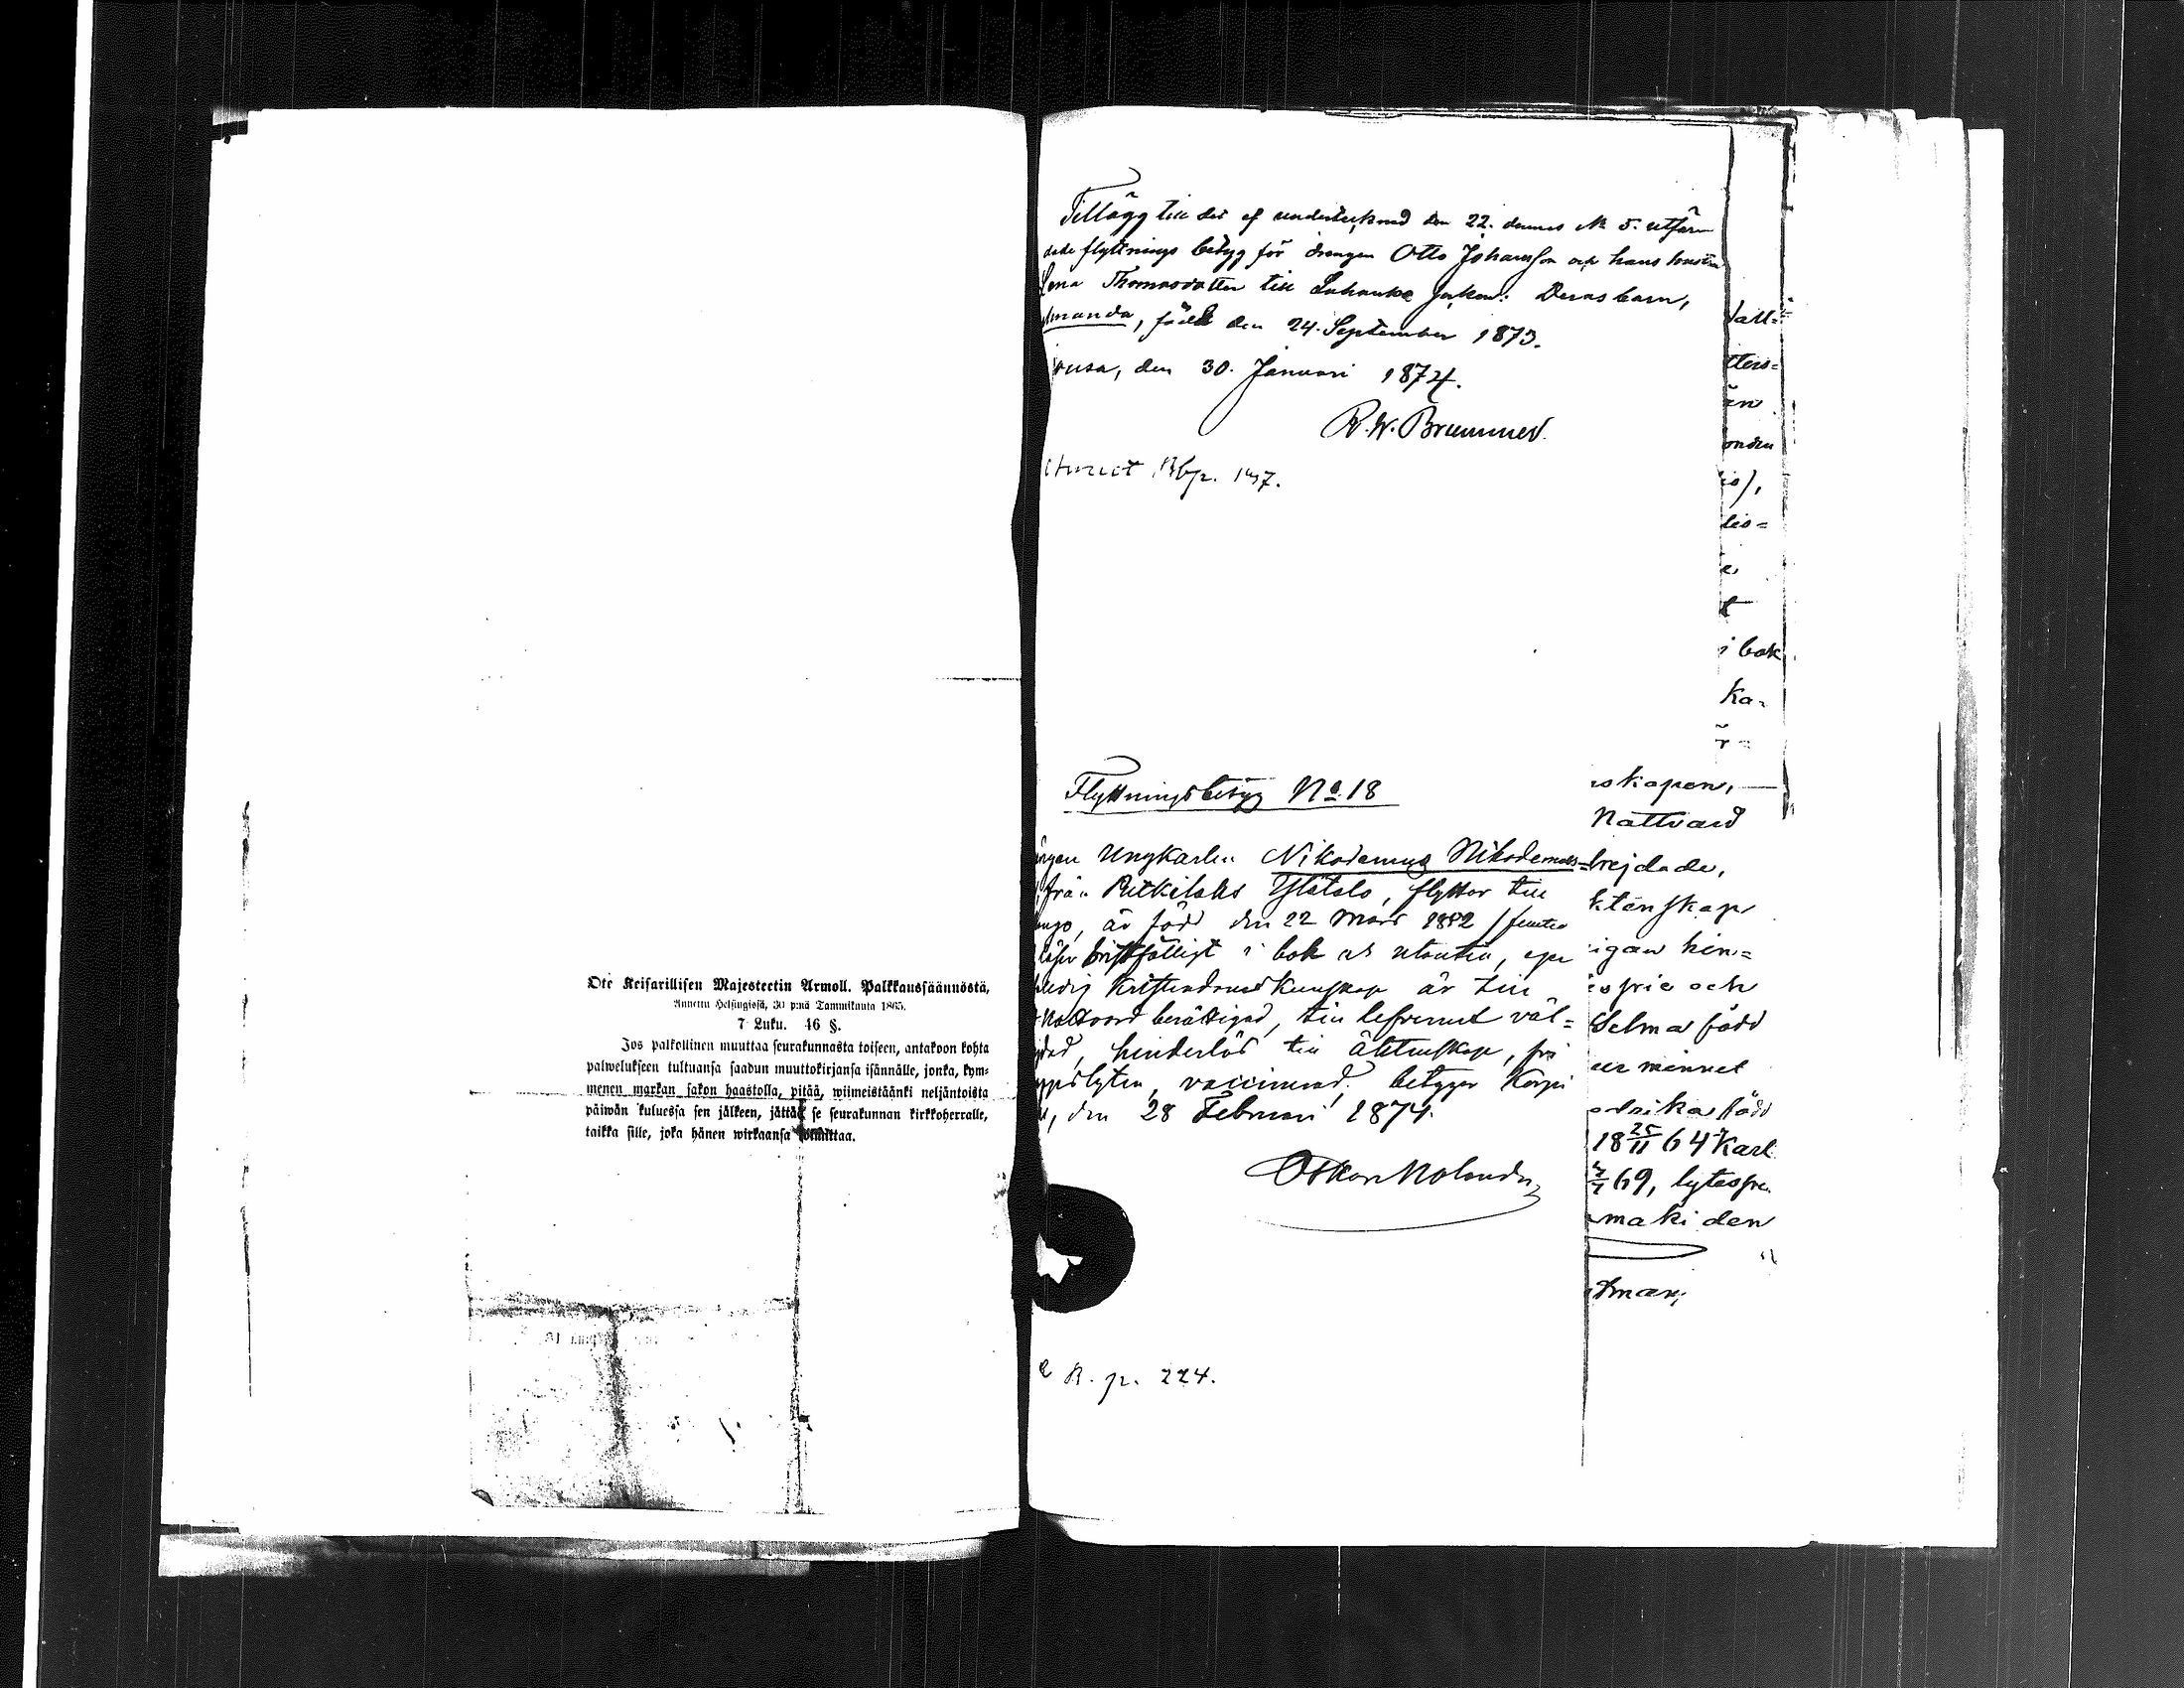 Ote Keisarillisen Majesteetin Armoll. Palkkaussäännöstä,
Annettu Helsingissä, 30 p:nä Tammikuuta 1865.
7 Luku. 46 §.
Jos palkollinen muuttaa seurakunnasta toiseen, antakoon kohta
palwelukseen tultuansa saadun muuttokirjansa isännälle, jonka, kym-
menen markan sakon haastolla, pitää, wiimeistäänki neljäntoista
päiwän kuluessa sen jälkeen, jättää se seurakunnan kirkkoherralle,
taikka sille, joka hänen wirkaansa toimittaa.
Tillägg till det af undertecknad den 22. dennes № 5. utfär
dade flyttnings betyg för drengen Otto Johansson och hans hustru
Lena Thomasdotter till Luhanka: Deras barn,
Amanda, född den 24. September 1873.
den 30. Januari 1874.
R. W. Brummer.
p. 147.
Flyttningsbetyg No 18
Ungkarlen Nikodemus Nikodemus=
från Putkilaks Ylätalo, flyttar till
är född den 22 Mars 1852
bristfälligt i bok och utantill, eger
kristendoms kunskap är till
Nattvard berättigad, till lefvernet väl=
hinderlös till äktenskap, fri
lyten, vaccinerad. betygar Korpi
den 28 Februari 1874.
Oskar Molander
R. p. 224.
vall=
tters=
än
onden
is),
lis=
e
t
i bok
ka=
r=
skapen,
Nattvard
brejdade,
ktenskap
igan hin=
sfrie och
Selma född
er minnet
drika född
18 25/11 64 Karl
69, lytesfri
maki den
tman